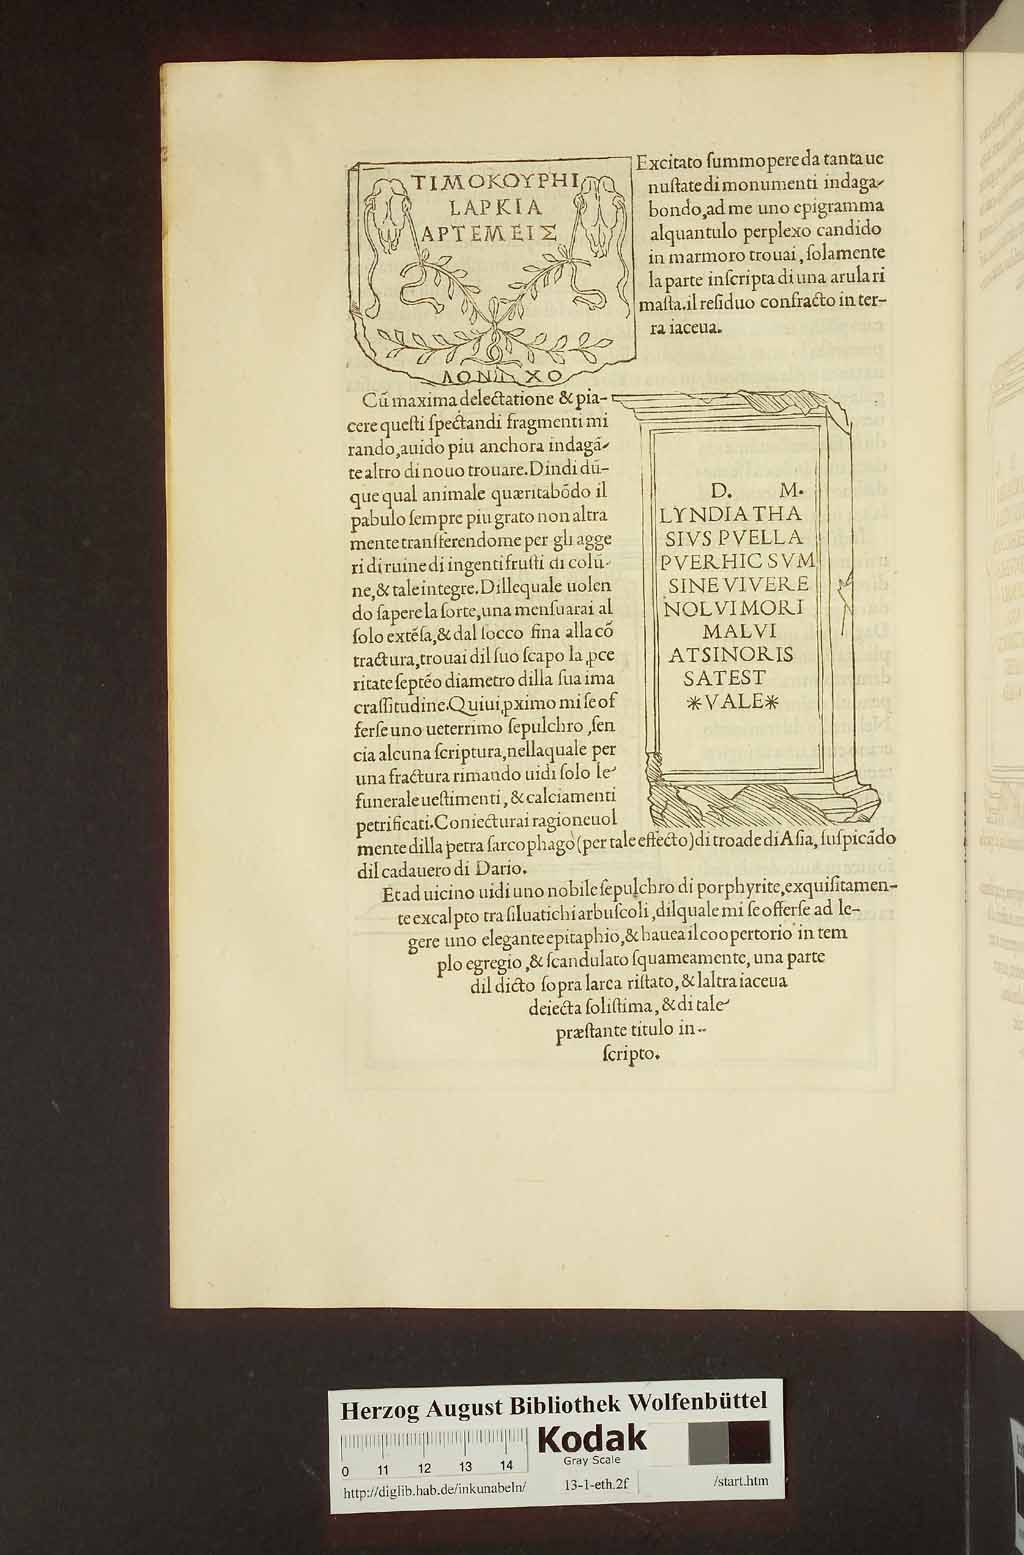 ΤΙΜΟΚΟΥΡΗΙ
LΑΡΚΙΑ
ΑΡΤΕΜΕΙΣ
ΛΟΝΠ ΧΟ
Excitato ſummopere da tanta ue
nuſtate di monumenti indaga-
bondo, ad me uno epigramma
alquantulo perplexo candido
in marmoro trouai, ſolamente
la parte inſcripta di una arula ri
maſta. il reſiduo confracto in ter-
ra iaceua.
Cū maxima delectatione & pia-
cere queſti ſpectandi fragmenti mi
rando, auido piu anchora indagā-
te altro di nouo trouare. Dindi dū-
que qual animale quæritabōdo il
pabulo ſempre piu grato non altra
mente tranſferendome per gli agge
ri di ruine di ingenti fruſti di colū-
ne, & tale integre. Dillequale uolen
do ſapere la ſorte, una menſuarai al
ſolo extēſa, & dal ſocco fina alla cō
tractura, trouai dil ſuo ſcapo la ꝓce
ritate ſeptēo diametro dilla ſua ima
craſſitudine. Quiui ꝓximo mi ſe of
ferſe uno ueterrimo ſepulchro, ſen
cia alcuna ſcriptura, nellaquale per
una fractura rimando uidi ſolo le
funerale ueſtimenti, & calciamenti
petrificati. Coniecturai ragioneuol
mente dilla petra ſarcophago (per tale effecto) di troade di Aſia, ſuſpicādo
dil cadauero di Dario.
D. M.
LYNDIA THA
SIVS PVELLA
PVER HIC SVM
SINE VIVERE
NOLVI MORI
MALVI
AT SI NORIS
SAT EST
*VALE*
Et ad uicino uidi uno nobile ſepulchro di porphyrite, exquiſitamen-
te excalpto tra ſiluatichi arbuſcoli, dilquale mi ſe offerſe ad le-
gere uno elegante epitaphio, & hauea il coopertorio in tem
plo egregio, & ſcandulato ſquameamente, una parte
dil dicto ſopra larca riſtato, & laltra iaceua
deiecta ſoliſtima, & di tale
præſtante titulo in-
ſcripto.
Herzog August Bibliothek Wolfenbüttel
Kodak
Gray Scale
0 11 12 13 14
http://diglib.hab.de/inkunabeln/ 13-1-eth.2f /start.htm